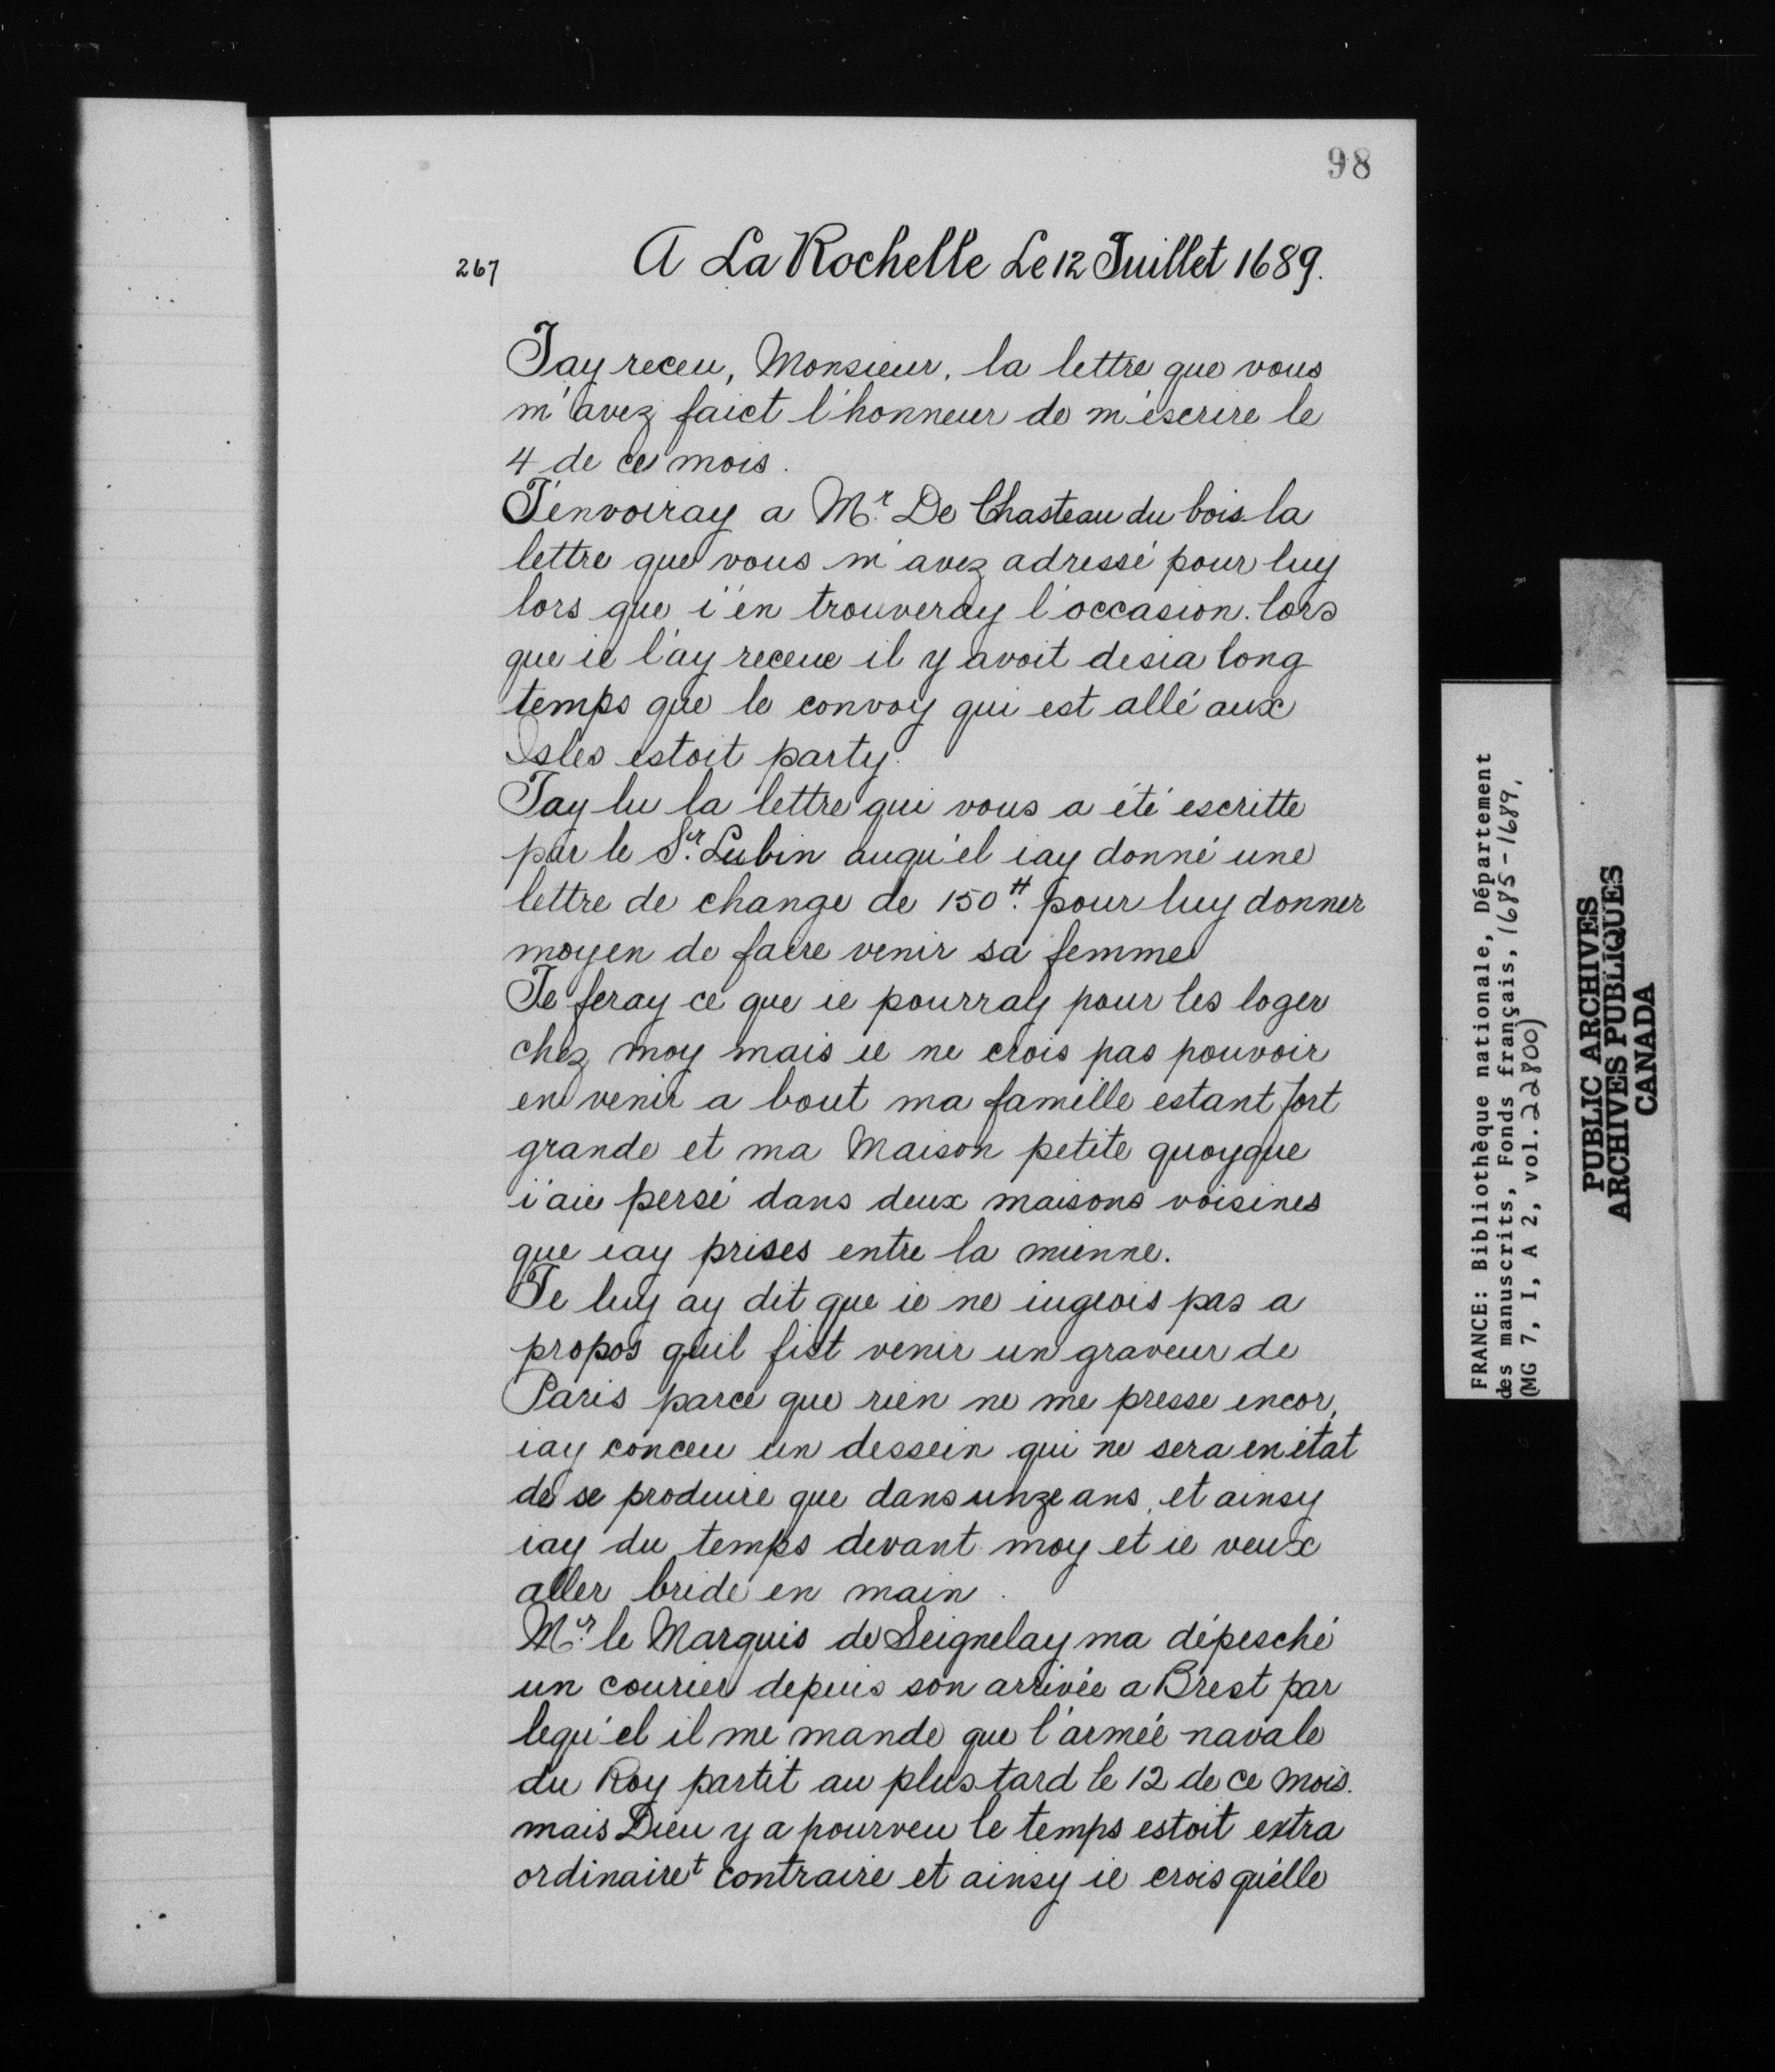 98
267 A La Rochelle Le 12 Juillet 1689.
Jay receu, Monsieur, la lettre que vous
m'avez faict l'honneur de m'escrire le
4 de ce mois.
J'envoiray a Mr. De Chasteau du bois la
lettre que vous m'avez adressé pour luy
lors que i'en trouveray l'occasion. lors
que ie l'ay receue il y avoit desia long
temps que le convoy qui est allé aux
Isles estoit party.
Jay lu la lettre qui vous a été escritte
par le Sr. Lubin auqu'el iay donné une
lettre de change de 150tt. pour luy donner
moyen de faire venir sa femme
Je feray ce que ie pourray pour les loger
chez moy mais ie ne crois pas pouvoir
en venir a bout ma famille estant fort
grande et ma Maison petite quoyque
i'aie persé dans deux maisons voisines
que iay prises entre la mienne.
Je luy ay dit que ie ne iugeois pas a
propos quil fist venir un graveur de
Paris parce que rien ne me presse encor,
iay conceu un dessein qui ne sera en état
de se produire que dans unze ans, et ainsy
iay du temps devant moy et ie veux
aller bride en main.
Mr. le Marquis de Seignelay ma dépesché
un courier depuis son arrivée a Brest par
lequ'el il me mande que l'armée navale
du Roy partit au plus tard le 12 de ce mois.
mais Dieu y a pourveu le temps estoit extra
ordinairet contraire et ainsy ie crois qu'elle
FRANCE: Bibliothèque nationale, Département
des manuscrits, Fonds français, 1685-1689,
(MG 7, I, A 2, vol. 22800)
PUBLIC ARCHIVES
ARCHIVES PUBLIQUES
CANADA